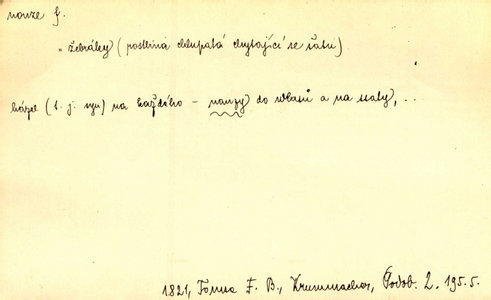 nouze f.
= žebráky (rostlina chlupatá chytající se šatu).
házel (t. j. syn) na každého – nouzy do wlasů a na ssaty, ..
1821, Tomsa F. B., Krummacher, Podob. 2. 195. 5.